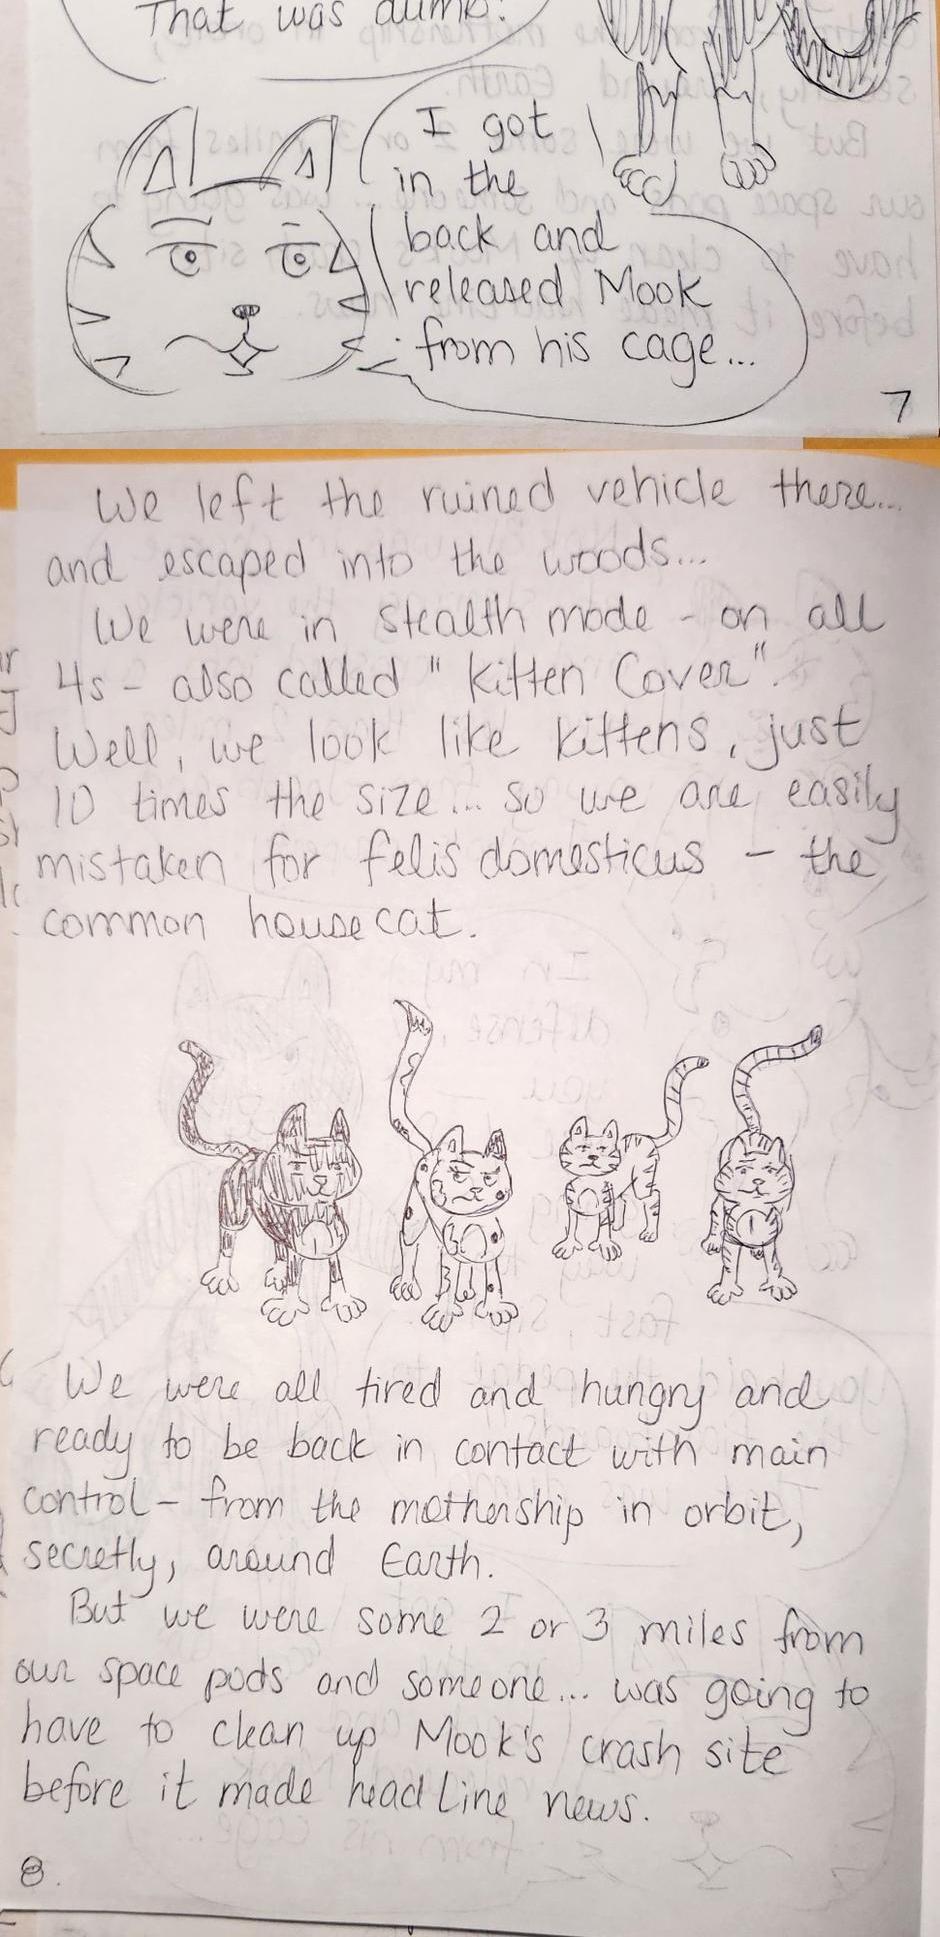 That was dumb!
I got
in the
back and
released Mook
from his cage...
7
We left the ruined vehicle there...
and escaped into the woods...
We were in stealth mode - on all
4s - also called "Kitten Cover".
Well, we look like kittens, just
10 times the size... so we are easily
mistaken for felis domesticus - the
common house cat.
We were all tired and hungry and
ready to be back in contact with main
control - from the mothership in orbit,
secretly, around Earth.
But we were some 2 or 3 miles from
our space pods and someone... was going to
have to clean up Mook's crash site
before it made head Line news.
8.